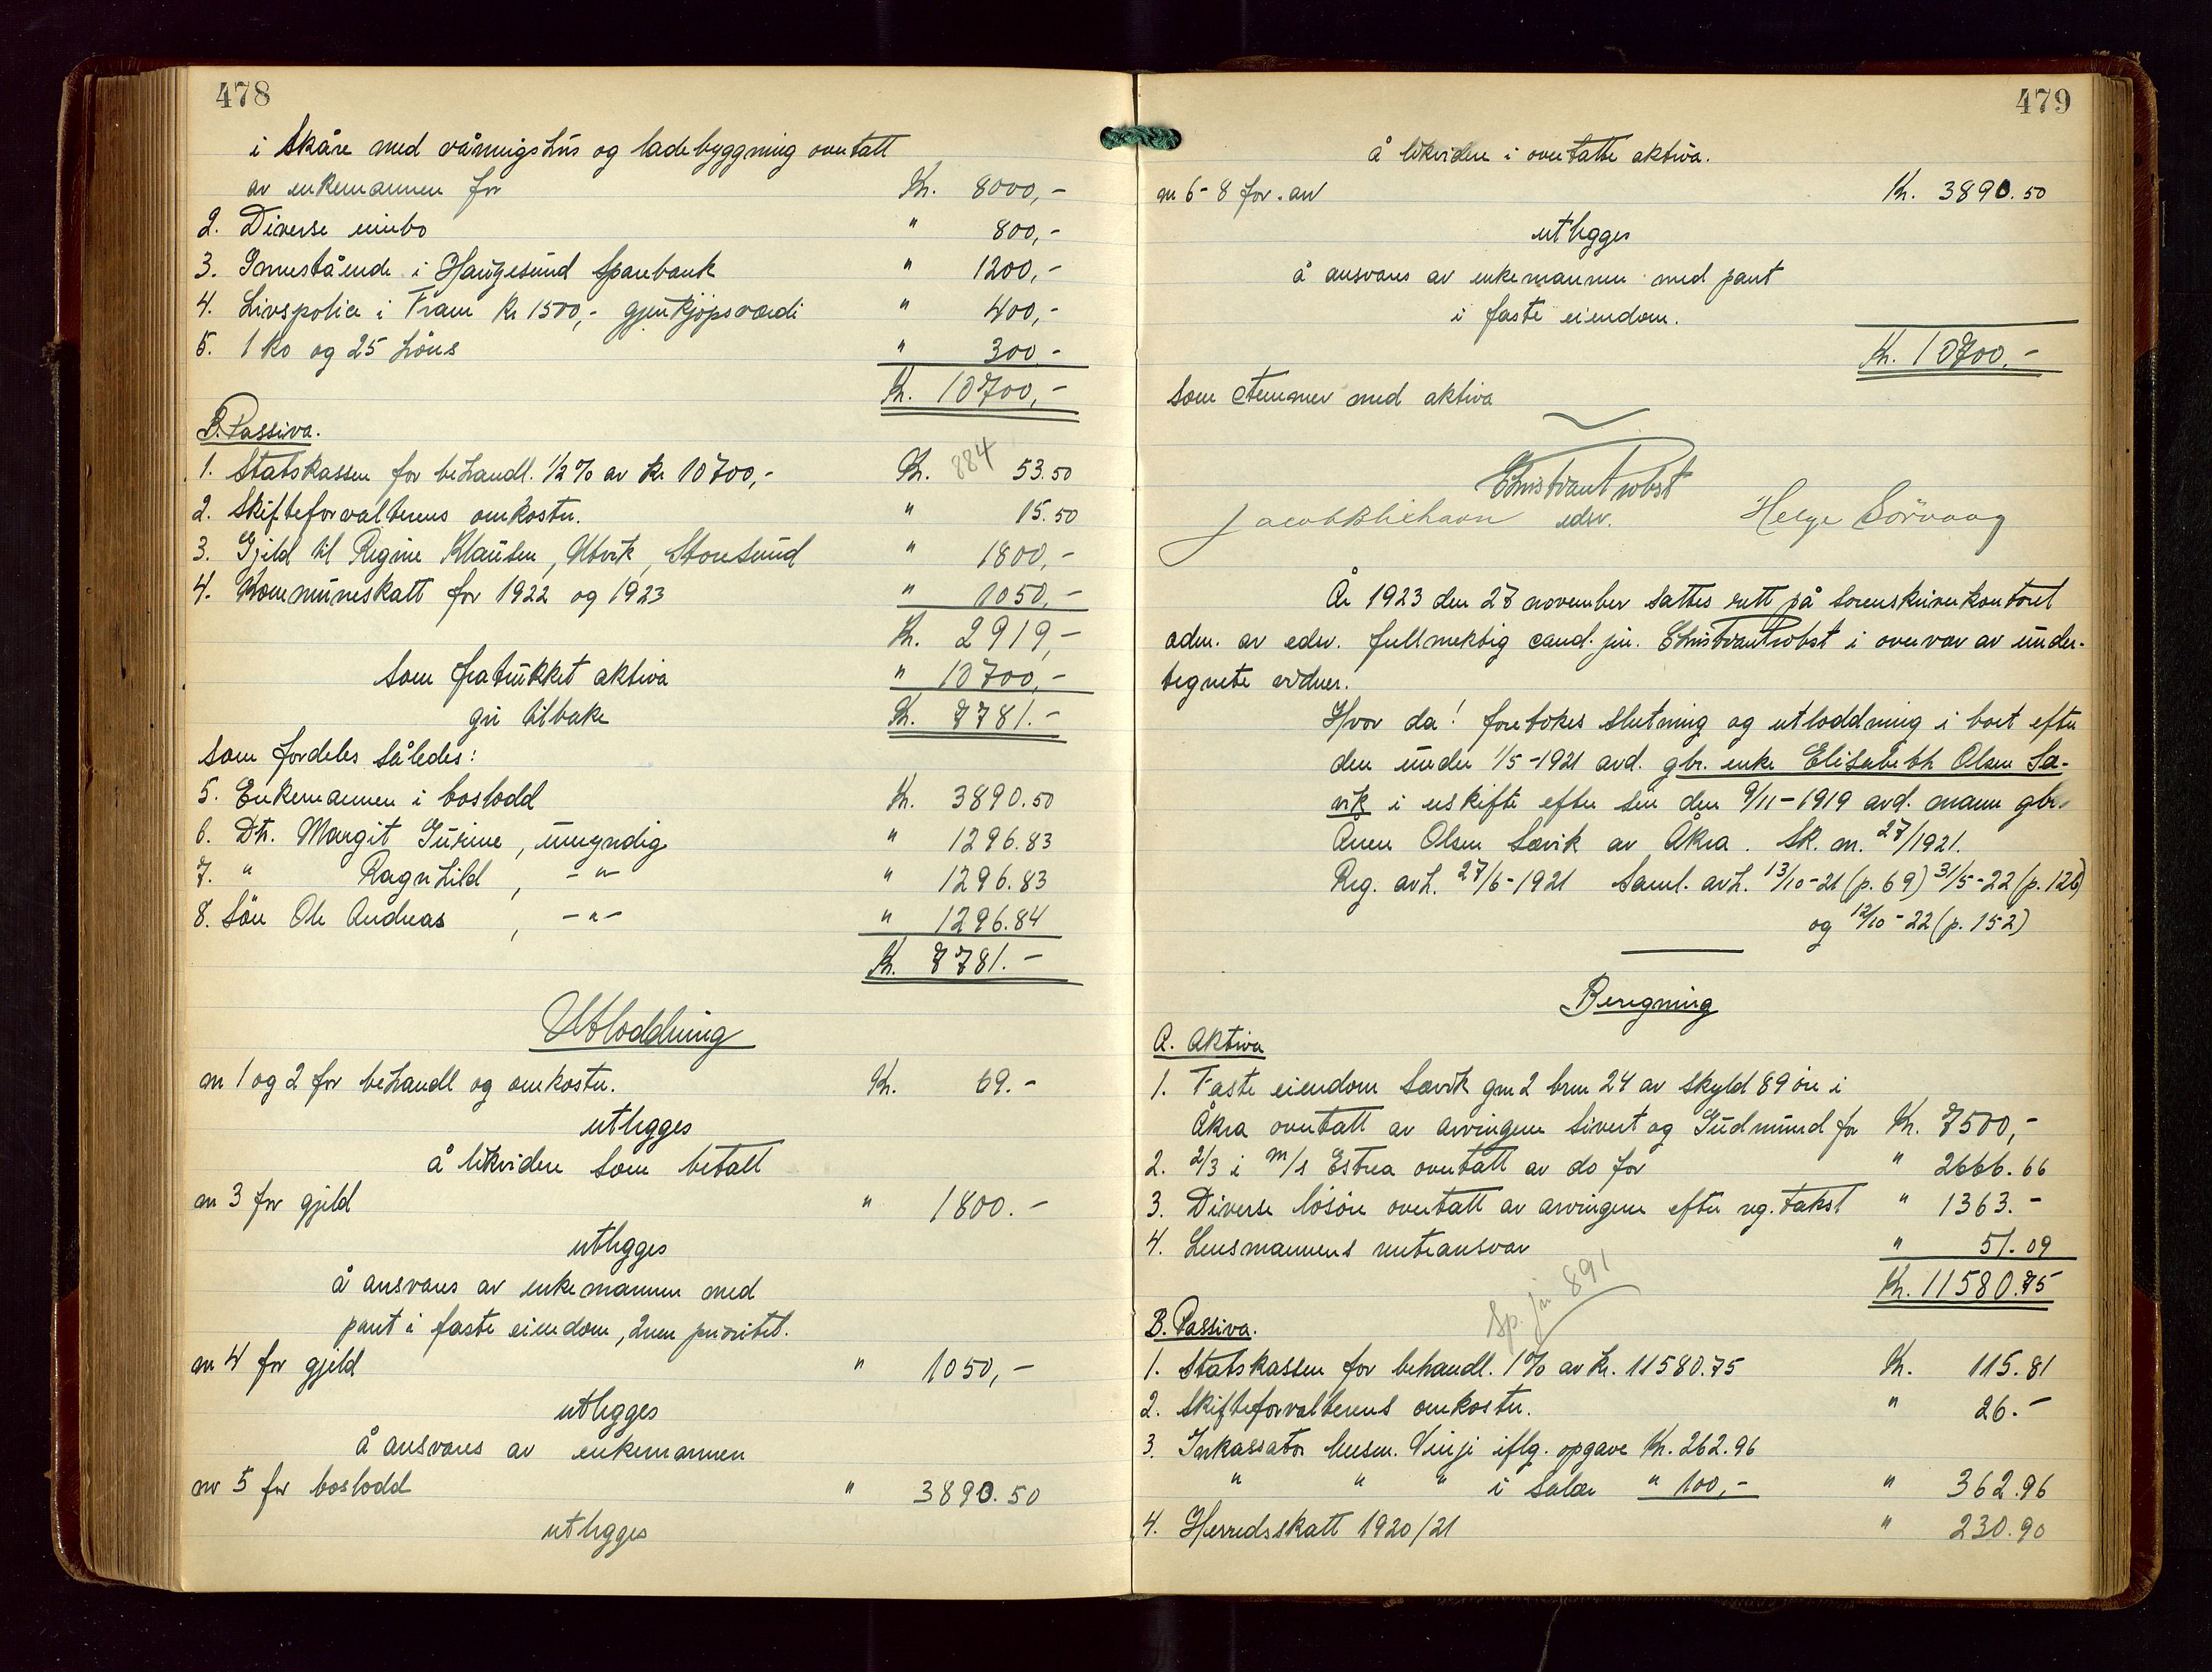 478
i Skåre med våningshus og ladebyggning overtatt
av enkemannen for Kr. 8000,-
2. Diverse innbo " 800,-
3. Innestående i Haugesund Sparebank " 1200,-
4. Livspolice i Fram kr 1500,- gjenkjøpsværdi " 400,-
5. 1 ko og 25 høns " 300,-
Kr. 10700,-
B. Passiva.
1. Statskassen for behandl. 1/2 % av kr 10700,- Kr. 884 53.50
2. Skifteforvalterens omkostn. " 15.50
3. Gjeld til Regine Klausen, Utvik, Storesund " 1800,-
4. Kommuneskatt for 1922 og 1923 " 1050,-
Kr. 2919,-
som fratrukket aktiva " 10700,-
gir tilbake Kr. 7781.-
som fordeles således:
5. Enkemannen i boslodd Kr. 3890.50
6. Dtr. Margit Gurine, umyndig " 1296.83
7. " Ragnhild, -"- " 1296.83
8. Søn Ole Andreas, -"- " 1296.84
Kr. 7781.-
Utloddning
nr 1 og 2 for behandl og omkostn. Kr. 69.-
utlegges
å likvidere som betalt
nr 3 for gjeld " 1800.-
utlegges
å ansvares av enkemannen med
pant i faste eiendom, 2nen prioritet.
nr 4 for gjeld " 1050,-
utlegges
å ansvares av enkemannen
nr 5 for boslodd " 3890.50
utlegges
479
å likvidere i overtatte aktiva.
nr 6-8 for arv Kr. 3890.50
utlegges
å ansvares av enkemannen med pant
i faste eiendom.
Kr. 10700.-
som stemmer med aktiva
Chr Strantrobst
edsv. Helge Sörvaag
År 1923 den 27 november sattes rett på sorenskriverkontoret
adm. av edsv. fullmektig cand. jur. Chr Strantrobst i overvær av under-
tegnete vidner.
Hvor da! foretokes slutning og utloddning i boet efter
den under 1/5-1921 avd. gbr. enke Elisabeth Olsen Sæ-
vik i uskifte efter sin den 9/11-1919 avd. mann gbr.
Ånen Olsen Sævik av Åkra. Sk. nr. 27/1921.
Reg. avh. 27/6-1921 Saml. avh. 13/10-21 (p. 69) 31/5-22 (p. 126)
og 12/10-22 (p. 152)
Beregning
A. Aktiva
1. Faste eiendom Sævik gnr 2 brnr 24 av skyld 89 øre i
Åkra overtatt av arvingene Sivert og Gudmund for Kr. 7500,-
2. 2/3 i m/s Estrea overtatt av do for " 2666.66
3. Diverse løsøre overtatt av arvingene efter reg. takst " 1363.-
4. Lensmannens renteansvar " 51.09
Kr. 11580.75
Sp. jr 891
B. Passiva.
1. Statskassen for behandl. 1% av kr. 11580.75 Kr. 115.81
2. Skifteforvalterens omkostn. " 26.-
3. Inkassator lensm. Vinje iflg. opgave Kr. 262.96
" " " i salær " 100,- " 362.96
4. Herredsskatt 1920/21 " 230.90